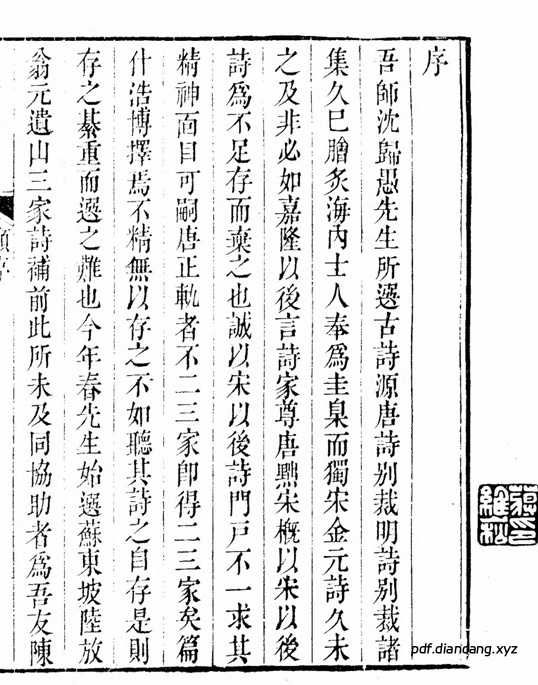 序
吾師沈歸愚先生所選古詩源唐詩别裁明詩别裁諸
集久巳膾炙海内士人奉爲圭臬而獨宋金元詩久未
之及非必如嘉隆以後言詩家尊唐黜宋槪以宋以後
詩爲不足存而棄之也誠以宋以後詩門戸不一求其
精神面目可嗣唐正軌者不二三家卽得二三家矣篇
什浩博擇焉不精無以存之不如聽其詩之自存是則
存之綦重而選之難也今年春先生始選蘇東坡陸放
翁元遺山三家詩補前此所未及同協助者爲吾友陳
pdf.diancang.xyz